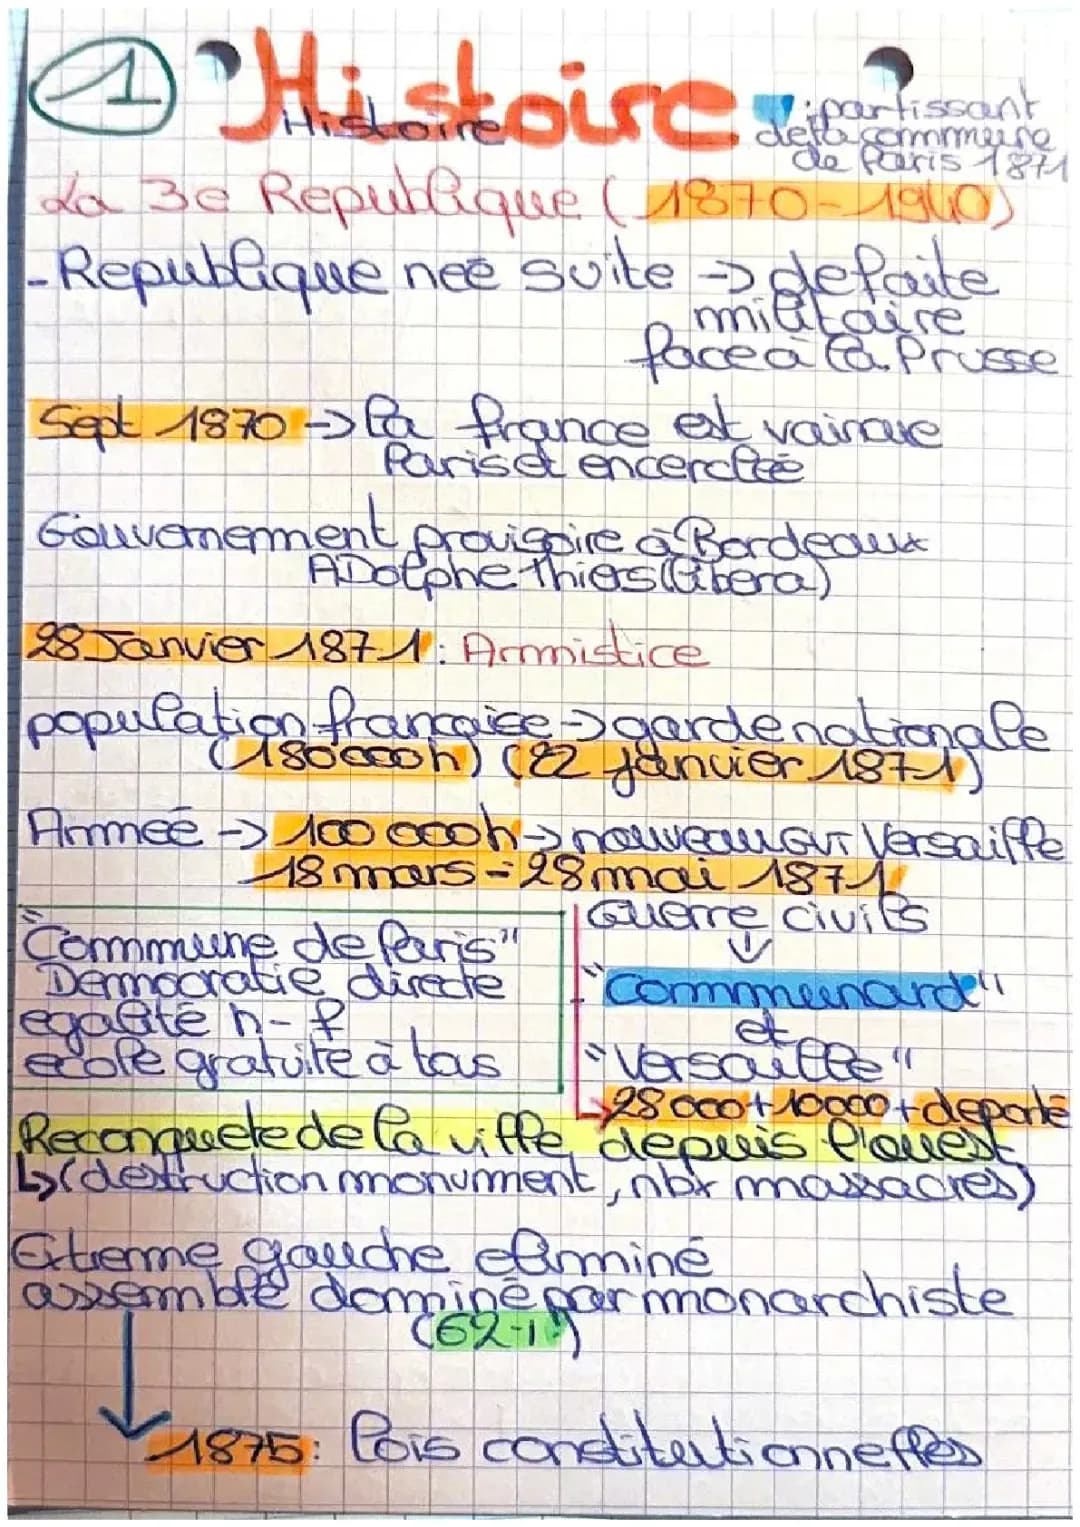 1 Histoire
Histoire
: partissant
de la commune
de Paris 1871
La 3e Republique (1870-1940)
- Republique neé suite -> defaite
militaire
face à la Prusse
Sept 1870 -> la france est vaincue
Paris et encerclée
Gouvernement provisoire à Bordeaux
ADolphe Thiers (libera)
28 Janvier 1871 : Armistice
population française -> garde nationale
(180 000 h) (22 janvier 1871)
Armeé -> 100 000 h -> nouveau Gvt Versaille
18 mars - 28 mai 1871
"Commune de Paris"
Democratie directe
egalité h-f
ecole gratuite à tous
Guerre civils
"Communard"
et
"Versaille"
28 000 + 10000 + deporté
Reconquete de la ville, depuis l'ouest
(destruction monument, nbx massacres)
gauche eliminé
assemblé dominé par monarchiste
1875 : lois constitutionnelles